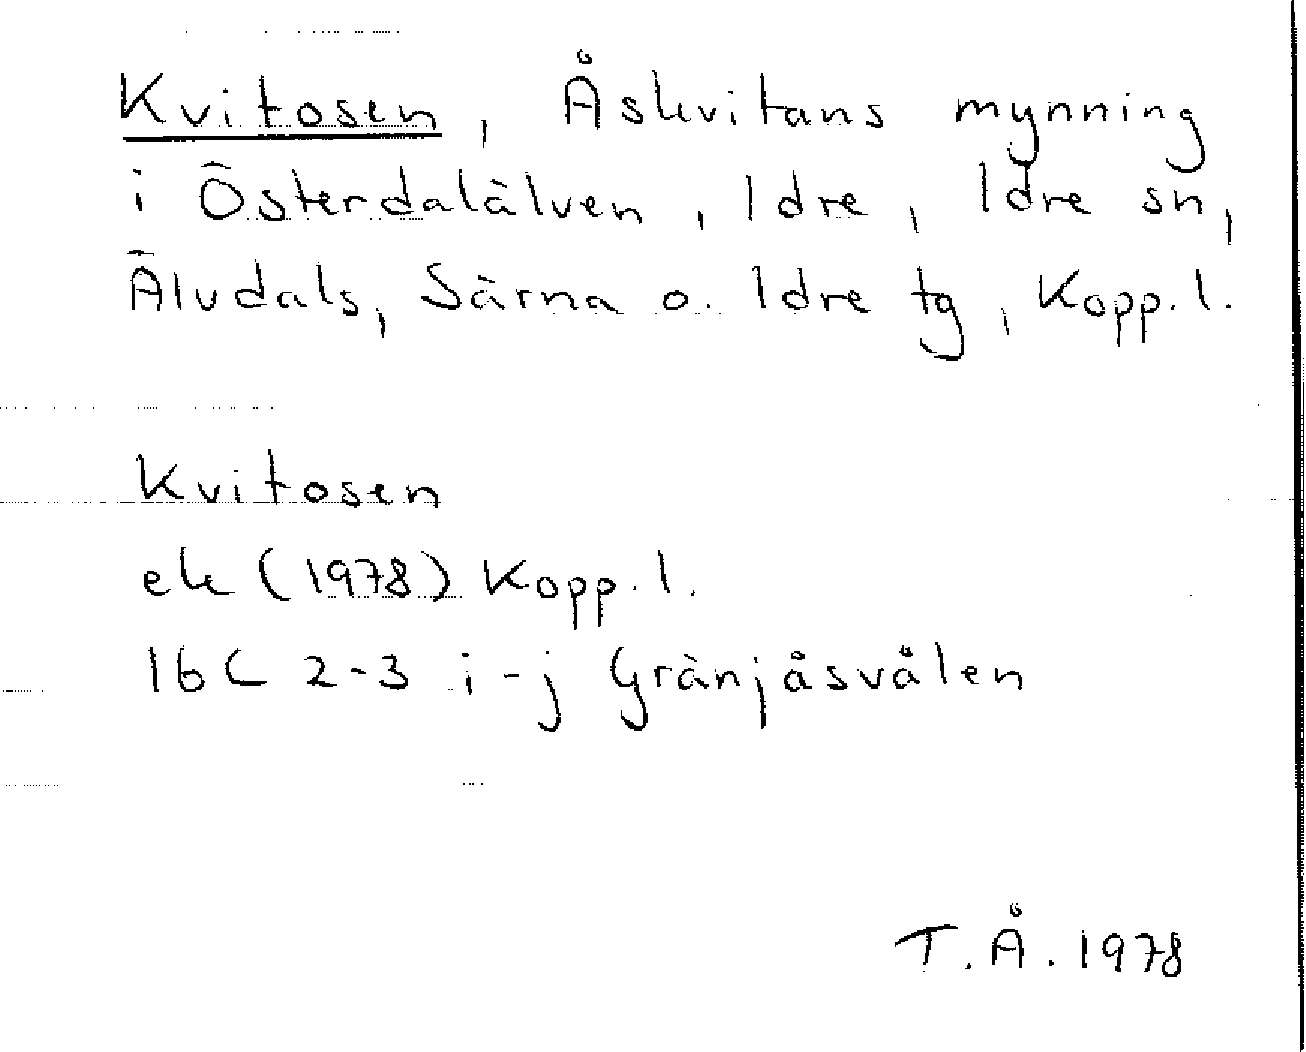 Kvitosen, Åskvitans mynning
i Österdalälven, Idre, Idre sn,
Älvdals, Särna o. Idre tg, Kopp. l.
Kvitosen
ek (1978) Kopp. l.
16C 2-3 i-j Gränjåsvålen
T.Å. 1978